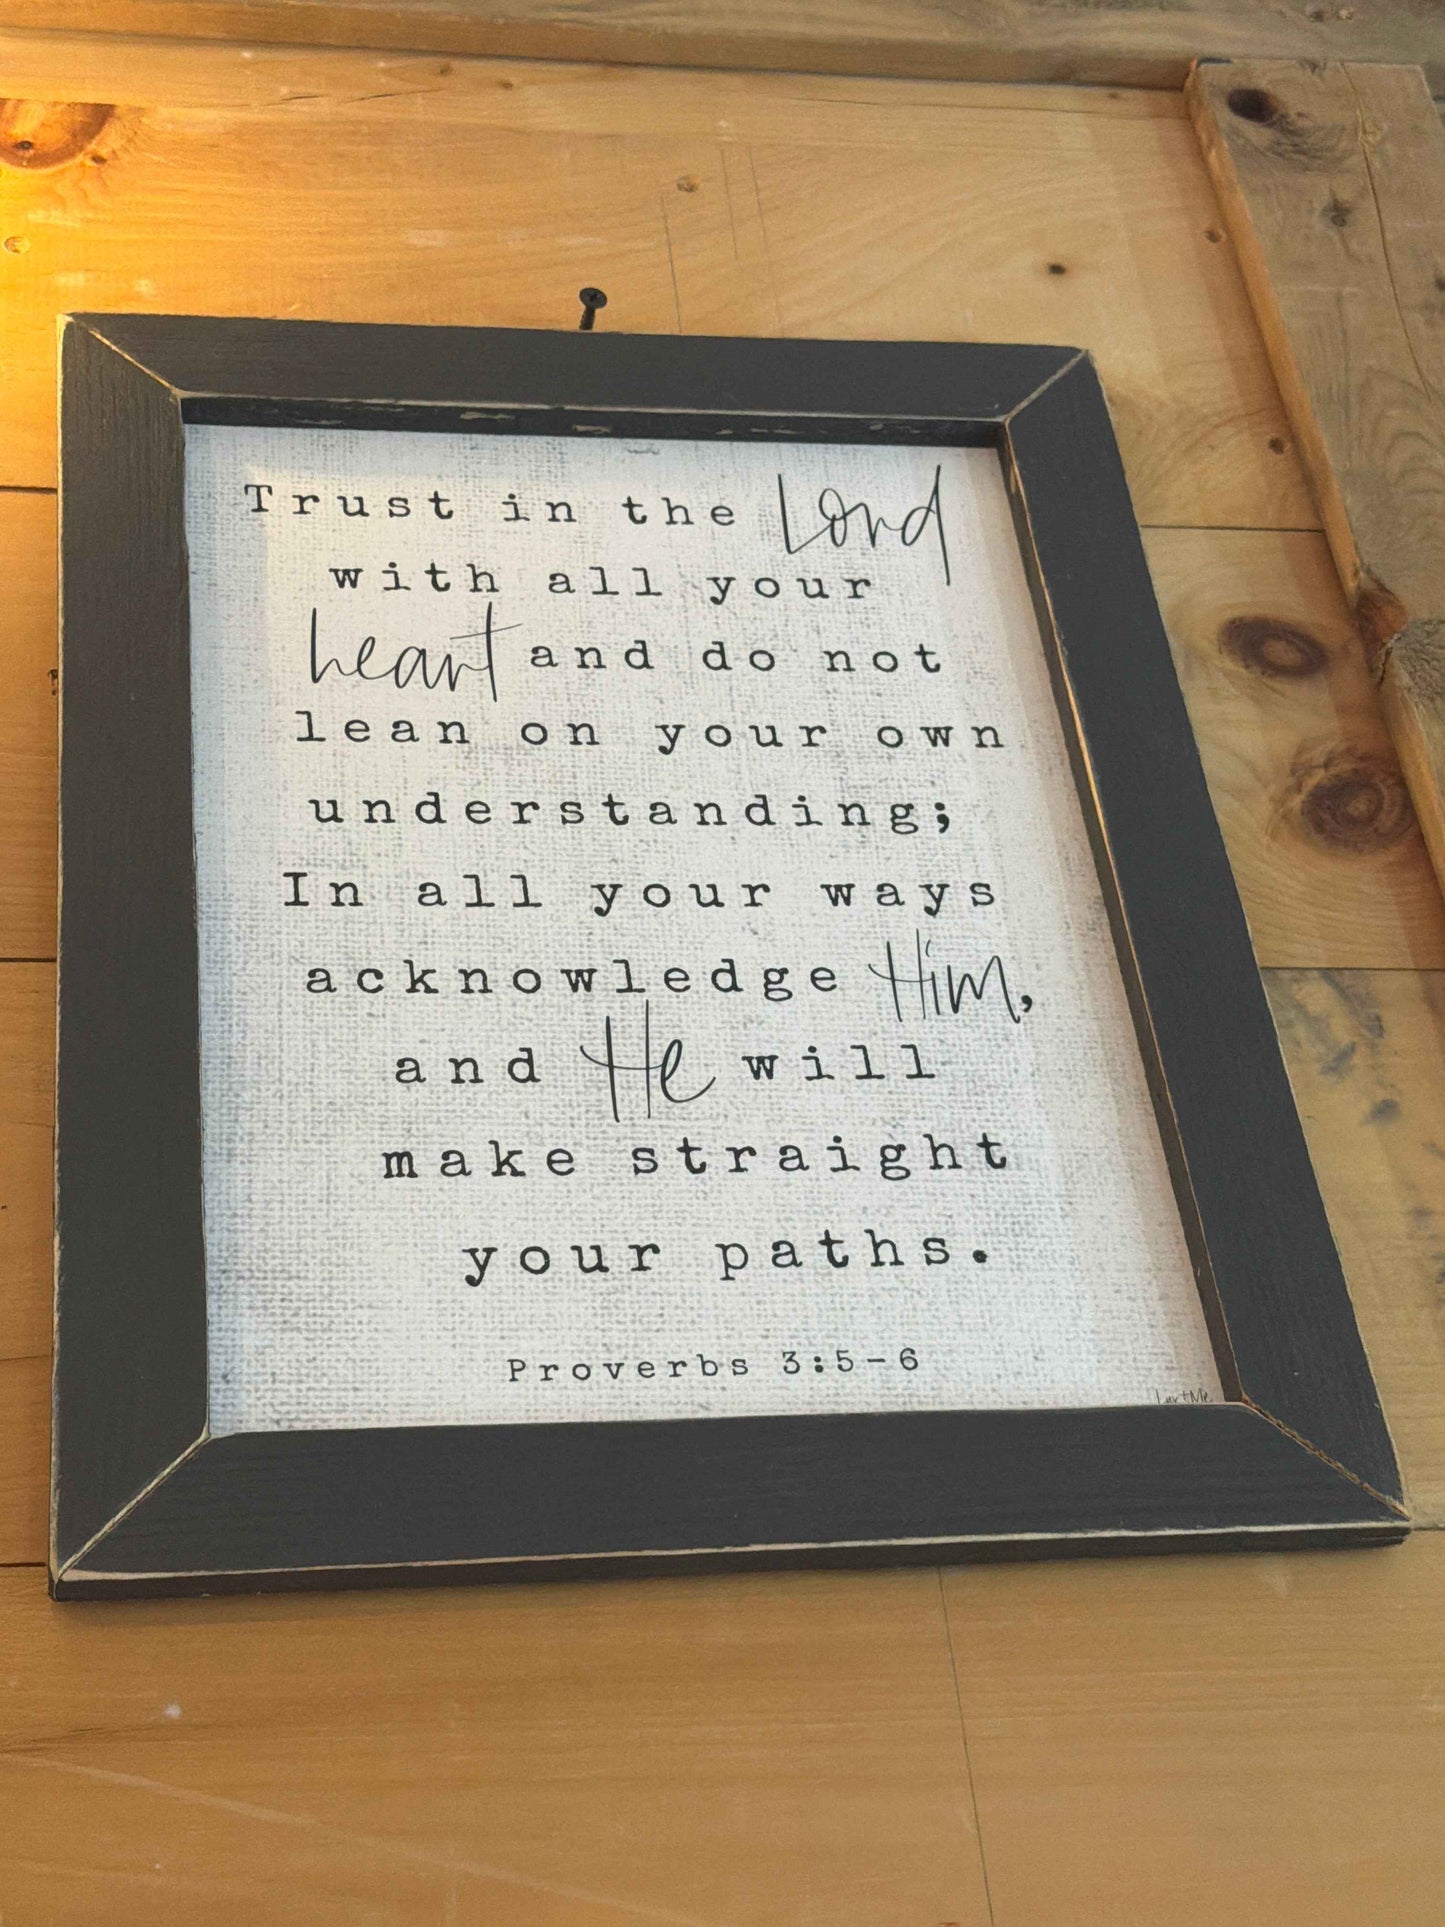 Trust in the Lord
with all your
heart and do not
lean on your own
understanding;
In all your ways
acknowledge Him,
and He will
make straight
your paths.
Proverbs 3:5-6